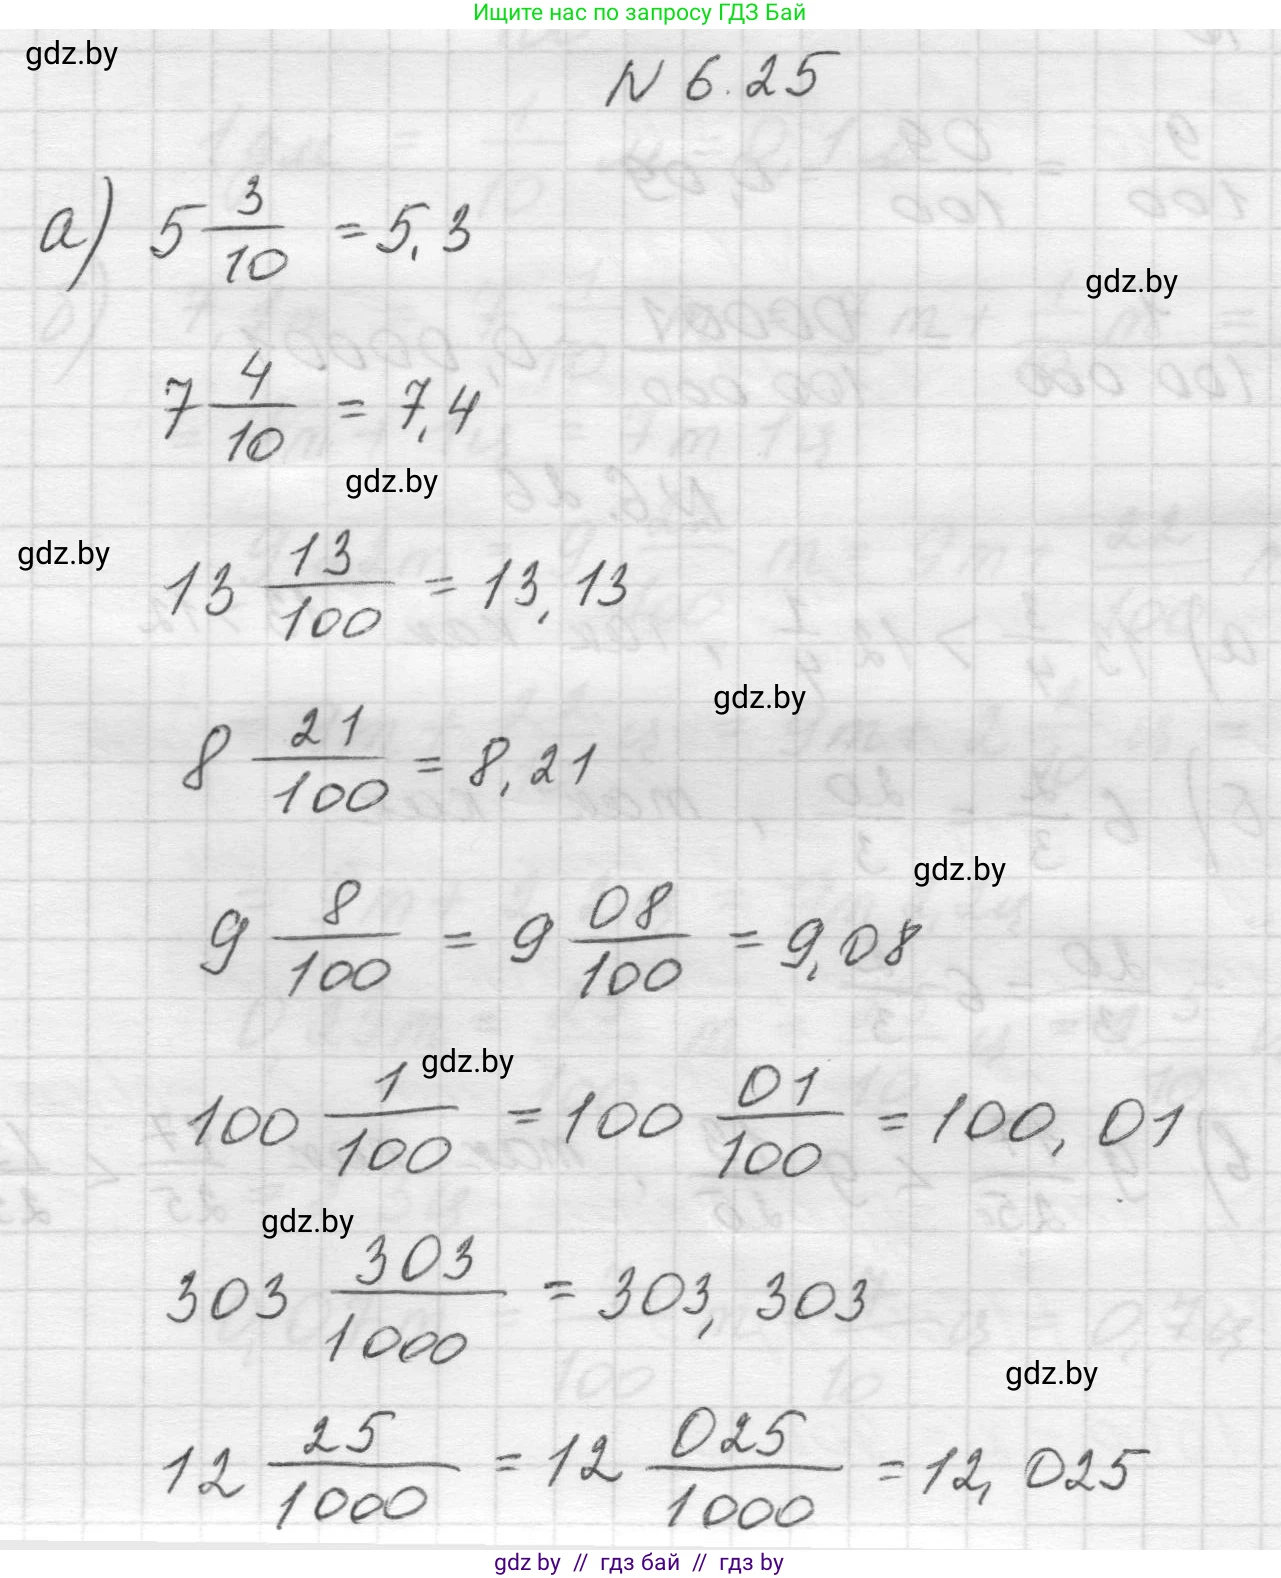 Ищите нас по запросу ГДЗ Бай
gdz.by
N 6.25
а) 5 3/10 = 5,3
gdz.by
7 4/10 = 7,4
gdz.by
gdz.by
13 13/100 = 13,13
gdz.by
8 21/100 = 8,21
gdz.by
9 8/100 = 9 08/100 = 9,08
gdz.by
100 1/100 = 100 01/100 = 100,01
gdz.by
303 303/1000 = 303,303
gdz.by
12 25/1000 = 12 025/1000 = 12,025
gdz by // гдз бай // гдз by